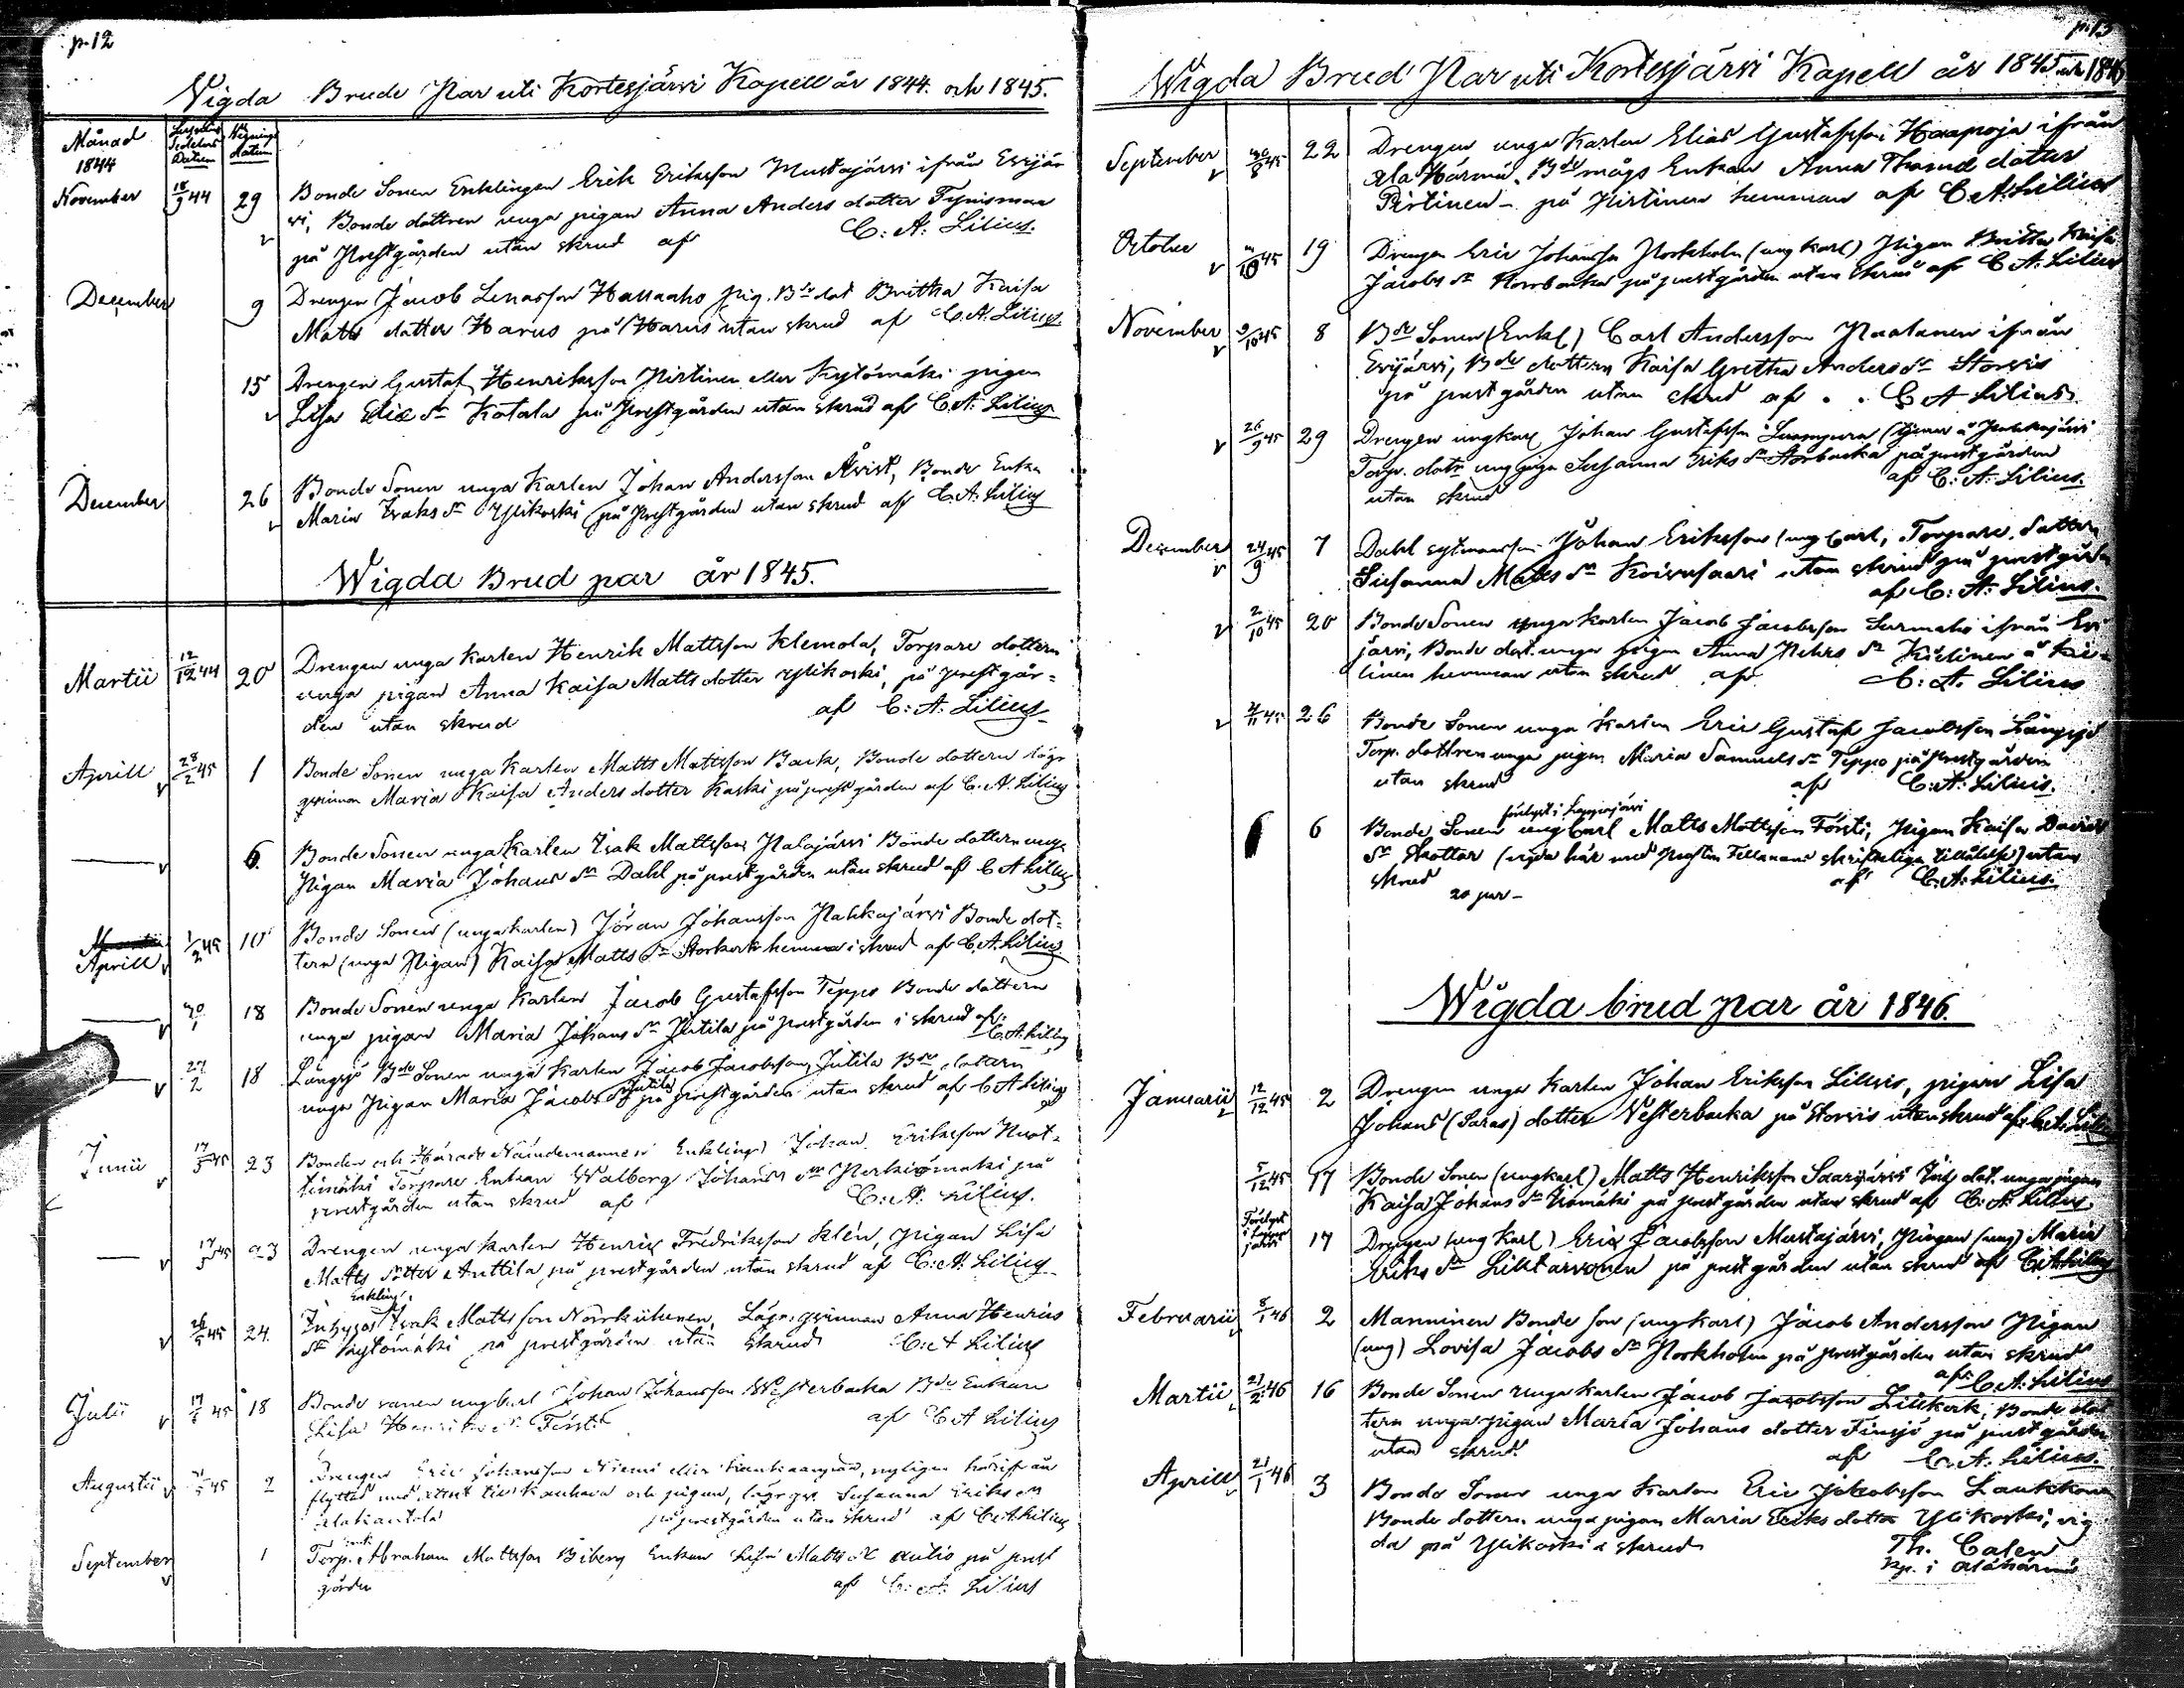 p. 12
Vigda Brude Par uti Kortesjärvi Kapell år 1844. och 1845.
Månad 1844
Datum
Vignings datum
November 18/9 44 29 Bonde Sonen Enklingen Erik Eriksson Mustajärvi ifrån Evijär
vi, Bonde dottren unga pigan Anna Anders dotter Tynismaa
på Prestgården utan skrud af C: A: Lilius.
December 9 Drengen Jacob Hassaaho pig. Bde dot Britha Kaisa
Matts dotter Harus på Harus utan skrud af C. A. Lilius
15 Drengen Gustaf Henriksson Pirtinen eller Kytömäki pigan
Lisa Eric dr Katala på Prestgården utan skrud af C. A. Lilius
December 26 Bonde Sonen unga Karlen Johan Andersson Åvist, Bonde Enka
Maria Isaks dr Ylikoski på Prestgården utan skrud af C. A. Lilius
Wigda Brud par år 1845.
Martii 12/12 44 20 Drengen unga Karlen Henrik Mattsson Klemola, Torpare dottern
unga pigan Anna Kaisa Matts dotter Ylikoski, på Prestgår=
den utan skrud af C: A: Lilius
Aprill 28/2 45 1 Bonde Sonen unga Karlen Matts Mattsson Back, Bonde dottern lägr
qvinnan Maria Kaisa Anders dotter Kaski på prestgården af C. A. Lilius
6. Bonde Sonen unga Karlen Isak Mattsson Palojärvi Bonde dottern unga
Pigan Maria Johans dr Dahl på prestgården utan skrud af C A Lilius
Aprill 1/2 45 10 Bonde Sonen (unga karlen) Jöran Johansson Pahkajärvi Bonde dot=
tern (unga Pigan) Kaisa Matts dr hemma i skrud af C. A. Lilius
30/1 18 Bonde Sonen unga Karlen Jacob Gustafsson Teppo Bonde dottern
unga pigan Maria Johans dr Jutila på prestgården i skrud af C. A. Lilius
27/2 18 Långsjö Bde Sonen unga Karlen Jacob Jacobsson, Jutila Bde dottern
unga Pigan Maria Jacobs dr Jutila på prestgården utan skrud af C A Lilius
Junii 17/5 45 23 Bonden och Härads Nämndemannen Enkling Johan Eriksson
Torpare Enkan Walborg Johans dr på
prestgården utan skrud af C: A: Lilius.
17/5 45 23 Drengen unga karlen Henric Fredriksson Klén, Pigan Lisa
Matts dotter Anttila på prestgården utan skrud af C: A: Lilius
Enkling.
26/5 45 24. Inhyses Isak Mattsson Lägr. qvinnan Anna Henrics
dr Kytömäki på prestgården utan skrud C: A Lilius
Julii 17/5 45 18 Bonde sonen ung karl Johan Johansson Westerbacka Bde Enkan
Lisa Henriks dr Först af C A Lilius
Augustii 45 2 Drengen Eric Johansson Niemi eller nyligen härifrån
flyttad med attest till Kauhava och pigan, lägr. Susanna Eriks dr
Alakantola på prestgården utan skrud af C. A. Lilius
September 1 Torp. Abraham Mattsson Biberg Enkan Lisa Matts dr Aulio på prest
gården af C: A: Lilius
p. 13
Wigda Brud Par uti Kortesjärvi Kapell år 1845 och 1846
September 45 22 Drengen unga Karlen Elias Gustafsson Haapoja ifrån
Ala Härmä, Bde mågs Enkan Anna Thomæ dotter
Pirtinen - på Pirtinen hemman af C. A. Lilius
October 10 45 19 Drengen Eric Johansson Norkholm (ung karl) Pigan Britta Kaisa
Jacobs dr Norrbacka på prestgården utan skrud af C A. Lilius
November 9/10 45 8 Bde Sonen (Enkl) Carl Andersson Paalanen ifrån
Evijärvi, Bde dottren Kaisa Gretha Anders dr Storvis
på prestgården utan skrud af C A Lilius
26/9 45 29 Drengen ungkarl Johan Gustafsson (tjenar å Pahkajärvi
Torp. dotr ung piga Susanna Eriks dr Storbacka på prestgården
utan skrud af C: A: Lilius.
December 24/9 45 7 Dahl sytmansson Johan Eriksson (ung carl, Torpare dottern
Susanna Matts dr Koivusaari utan skrud på prestgården
af C: A: Lilius.
2/10 45 20 Bonde Sonen unga karlen Jacob Jacobsson ifrån Evi
järvi, Bonde dot. unga pigan Anna Pehrs dr Kielinen å Kie=
linen hemman utan skrud af C: A. Lilius
2/11 45 26 Bonde Sonen unga Karlen Eric Gustaf Jacobsson Långsjö
Torp. dottren unga pigan Maria Samuels dr Teppo på prestgården
utan skrud af C: A: Lilius.
förlyst i Lappajärvi
6 Bonde Sonen ung Carl Matts Mattsson Försti, Pigan Kaisa Davids
dr Skottar (vigda här med Prosten Fellmans skriftliga tillåtelse) utan
skrud af C. A: Lilius.
20 par -
Wigda brud par år 1846.
Januarii 12/12 45 2 Drengen unga Karlen Johan Eriksson Lillvis, pigan Lisa
Johans (Saras) dotter Vesterbacka på Storvis utan skrud af C. A. Lilius
5/12 45 17 Bonde Sonen (ungkarl) Matts Henriksson Saarijärvi dot. unga pigan
Kaisa Johans dr Isomäki på prestgården utan skrud af C. A. Lilius
Förlyst i Lappajärvi 17 Drengen (ung Karl) Eric Jacobsson Mustajärvi, Pigan (ung) Maria
Eriks dr Liiktarvonen på prestgården utan skrud af C. A. Lilius
Februarii 8/1 46 2 Manninen Bonde son (ung Karl) Jacob Andersson Pigan
(ung) Lovisa Jacobs dr Norkholm på prestgården utan skrud
af C. A: Lilius
Martii 21/2 46 16 Bonde Sonen unga Karlen Jacob Jacobsson Lillkork, Bonde dot
tern unga pigan Maria Johans dotter Finsjö på prestgården
utan skrud af C. A. Lilius.
Aprill 21/1 46 3 Bonde Sonen unga Karlen Eric Jakobsson Laukkonen
Bonde dottern unga pigan Maria Eriks dotter Ylikoski, vig
da på Ylikoski i skrud Th. Calen
Kp. i Alahärmä